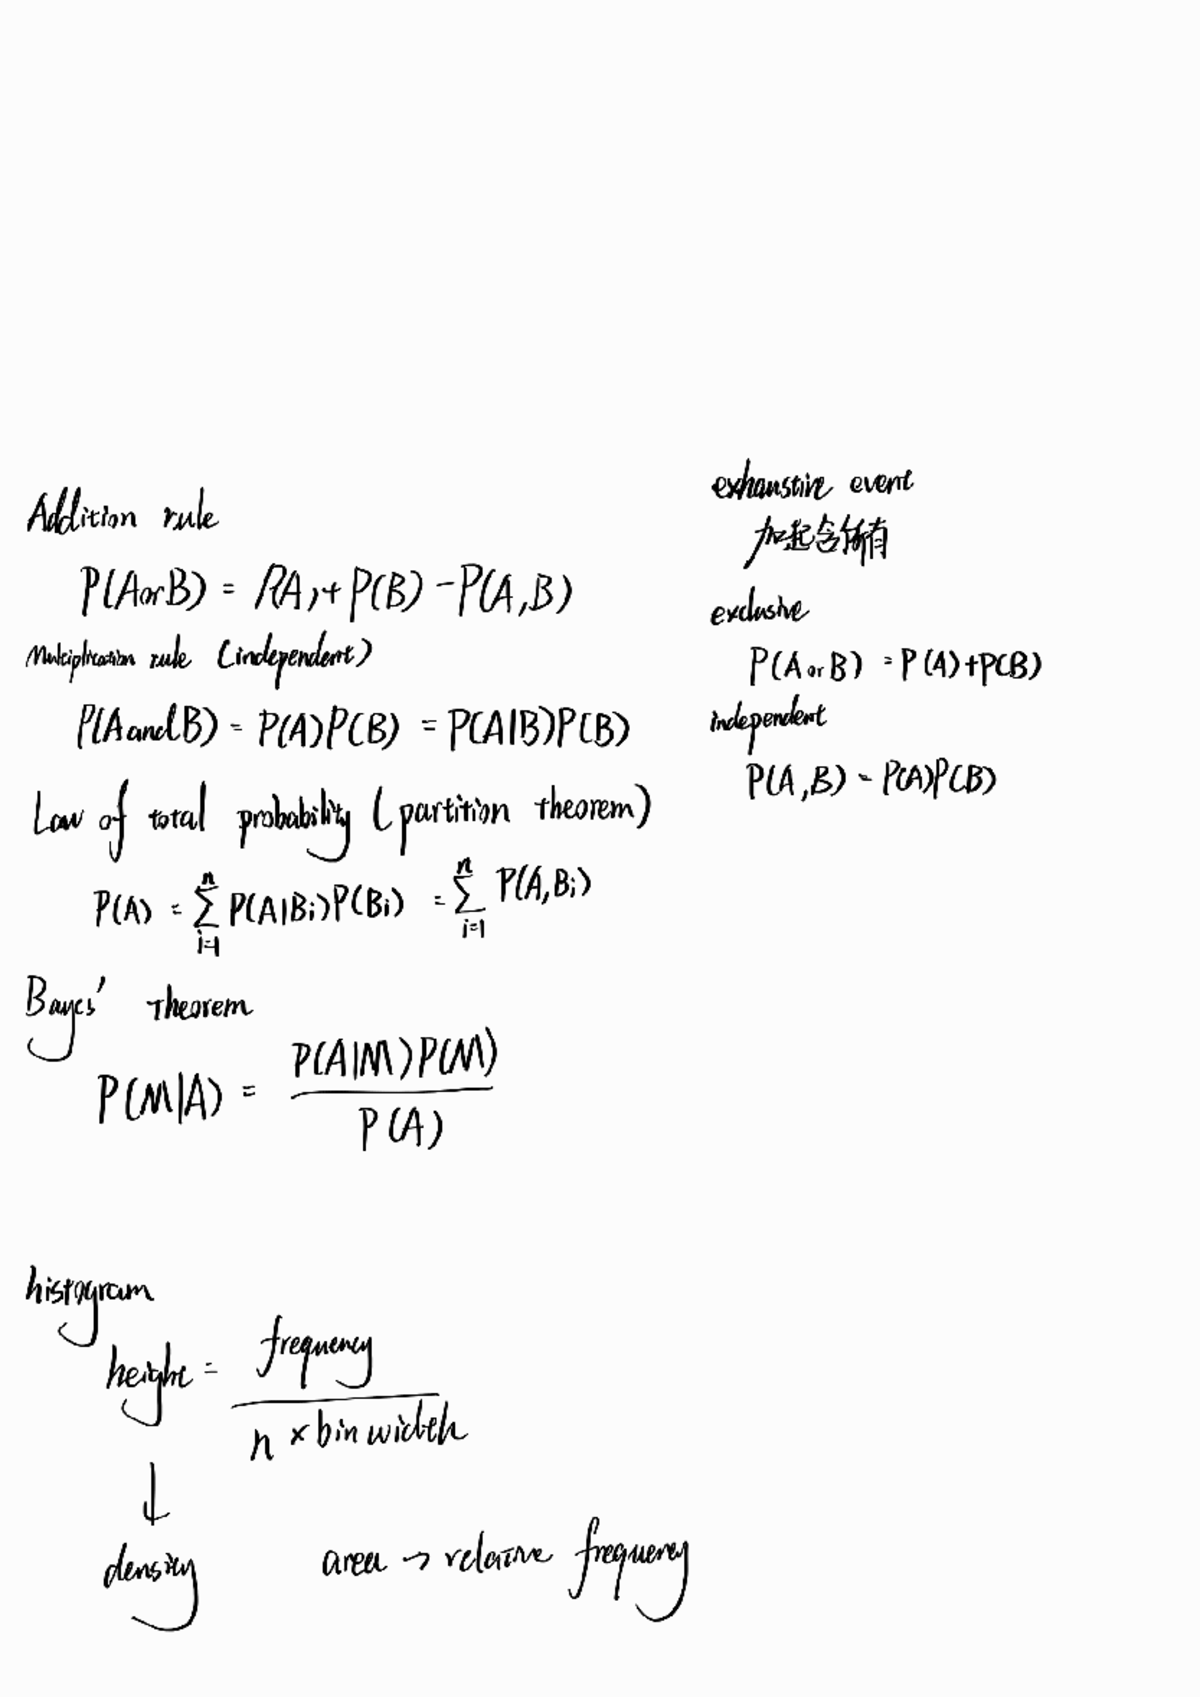 Addition rule
P(A or B) = P(A) + P(B) - P(A,B)
Multiplication rule (independent)
P(A and B) = P(A)P(B) = P(A|B)P(B)
Law of total probability (partition theorem)
P(A) = ∑_{i=1}^{n} P(A|Bi)P(Bi) = ∑_{i=1}^{n} P(A,Bi)
Bayes' Theorem
P(M|A) = P(A|M)P(M) / P(A)
exhaustive event
加起含所有
exclusive
P(A or B) = P(A)+P(B)
independent
P(A,B) = P(A)P(B)
histogram
height = frequency / n × bin width
↓
density area → relative frequency